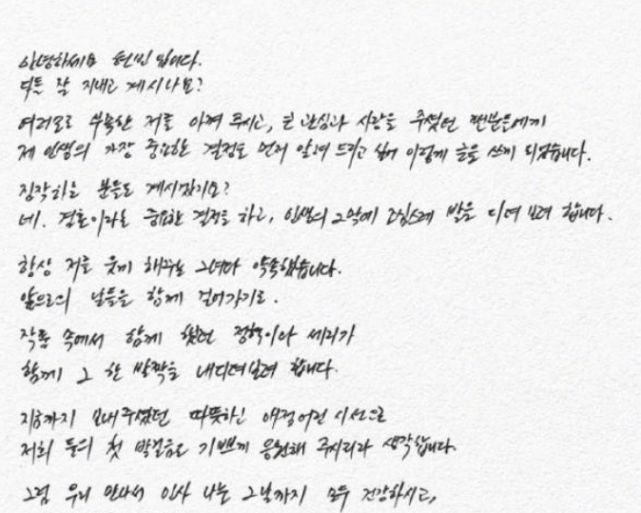 안녕하세요 현빈 입니다.
다들 잘 지내고 계시나요?
여러모로 부족한 저를 아껴 주시고, 큰 관심과 사랑을 주셨던 팬분들에게
제 인생의 가장 중요한 결정을 먼저 알려 드리고 싶어 이렇게 글을 쓰게 되었습니다.
짐작하실 분들도 계시겠지요?
네. 결혼이라는 중요한 결정을 하고, 인생의 2막에 조심스레 발을 디뎌 보려 합니다.
항상 저를 웃게 해주는 그녀와 약속했습니다.
앞으로의 날들을 함께 걸어가기로.
작품 속에서 함께 했던 정혁이와 세리가
함께 그 한 발짝을 내디뎌보려 합니다.
지금까지 보내주셨던 따뜻하신 애정어린 시선으로
저희 둘의 첫 발걸음을 기쁘게 응원해 주시리라 생각합니다.
그럼 우리 만나서 인사 나눌 그날까지 모두 건강하시고,